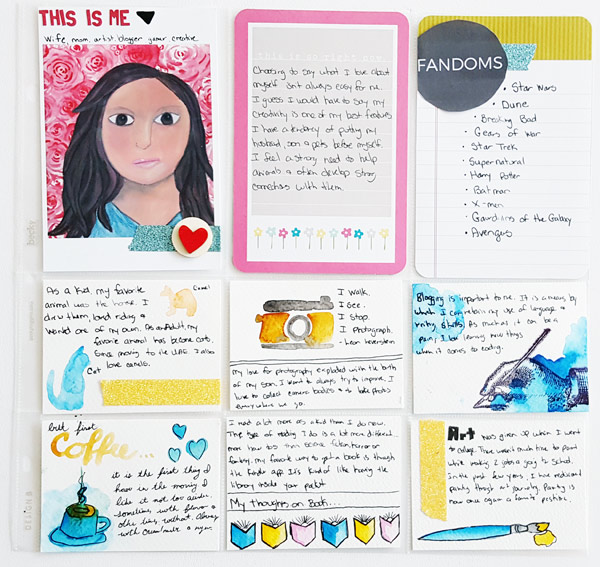 THIS IS ME
Wife, mom, artist, blogger gamer creative
Choosing to say what I love about
myself isn't always easy for me.
I guess I would have to say my
creativity is one of my best features
I have a tendency of putting my
husband, son & pets before myself.
I feel a strong need to help
animals & often develop strong
connections with them.
FANDOMS
• Star Wars
• Dune
• Breaking Bad
• Gears of War
• Star Trek
• Supernatural
• Harry Potter
• Batman
• X-men
• Guardians of the Galaxy
• Avengers
As a kid, my favorite
animal was the horse. I
drew them, loved riding &
wanted one of my own. As an Adult, my
favorite animal has become cats.
Since moving to the UAE I also
love camels.
Camel
Cat
I Walk.
I See.
I Stop.
I Photograph.
- Leon Levenstein
my love for photography exploded with the birth
of my son. I want to always try to improve. I
love to collect camera bodies & take photos
everywhere we go.
Blogging is important to me. It is a means by
which I can retain my use of language &
writing skills. As much as it can be a
pain, I love learning new things
when it comes to coding.
but first
Coffee...
it is the first thing I
have in the morning. I
like it not too bitter,
sometimes with flavor &
other times without. Always
with creamer & sugar.
I read a lot more as a kid than I do now.
The type of reading I do is a lot more different
now too from science fiction, horror or
fantasy. my favorite way to get a book is through
the Kindle app. It's kind of like having the
library inside your pocket
My Thoughts on Books...
Art was given up when I went
to college. There wasn't much time to paint
while working 2 jobs & going to School.
In the past few years, I rediscovered
painting through art journaling. Painting is
now once again a favorite pastime.